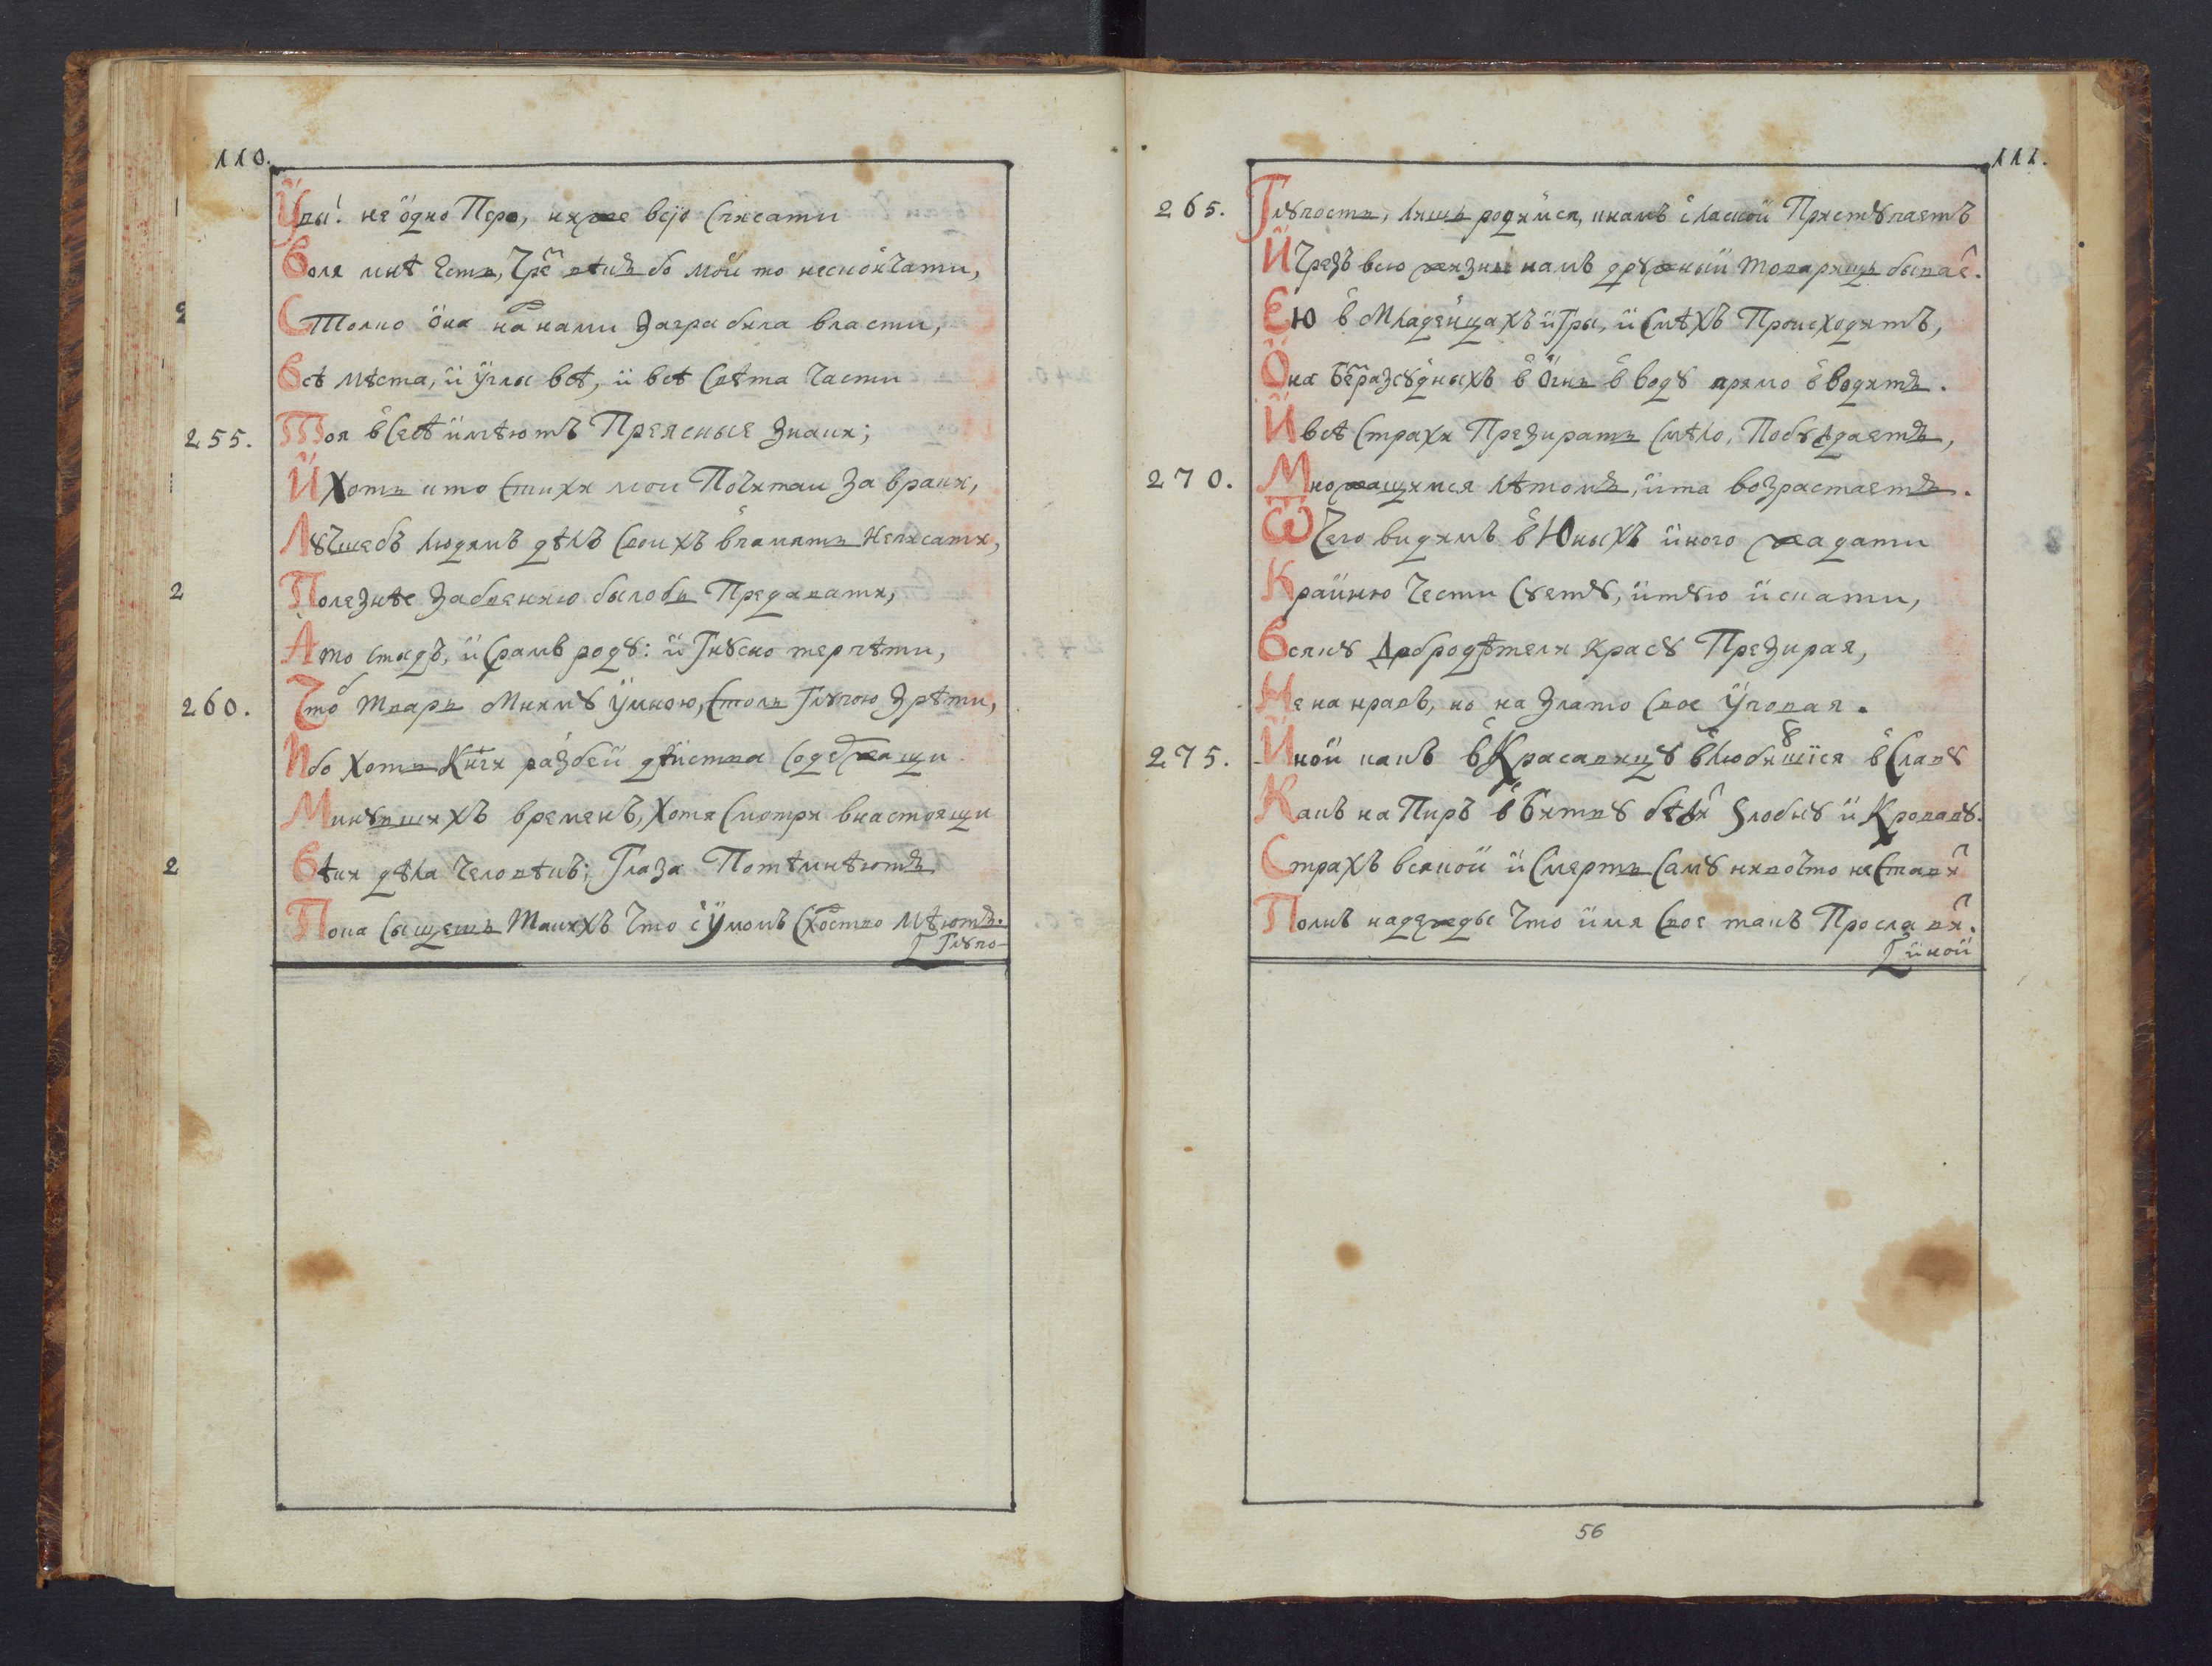 110.
Увы! не одно Перо, ниже всю списати
Воля мнѣ есть, Чрез вѣкъ бо мой то нескончати,
Столко она над нами заграбила власти,
Всѣ мѣста, и углы всѣ, и всѣ свѣта части
255. Тоя в себѣ имѣютъ Преясные знаки;
И Хоть кто стихи мои Почитаи за враки,
Лꙋчшебъ людямъ дѣлъ своихъ впамять Неписати,
Полезнѣе забвению былобъ Предавати,
А то стыдъ, и срамъ родꙋ: и Гнꙋсно терпѣти,
260. Чтоб тварь мнимꙋ умною, столь Глꙋпою зрѣти,
Ибо хоть Книги разбей дѣйства содержащи
Минꙋвшихъ временъ, хотя смотри внастоящи
Вѣки дѣла человѣкъ; Глаза Потѣмнѣютъ
Пока сыщешь Такихъ Что с умомъ сходство мѣютъ.
Глꙋпо-
111.
265. Глꙋпость, лишь родимся, кнамъ с лаской Пристꙋпаетъ
И Чрезъ всю жизнь намъ дрꙋжный товарищь бывает.
Ею в младенцахъ игры, и смѣхъ Происходятъ,
Она безразсꙋдныхъ в огнь в водꙋ прямо вводитъ.
И всѣ страхи Презирать смѣло, Побꙋждаетъ,
270. Множащимся лѣтомъ, и та возрастаетъ.
Ѿ чего видимъ в Юныхъ иного жадати
Крайню чести сꙋетꙋ, и тꙋю искати,
Всякꙋ Добродѣтели красꙋ Презирая,
Не на нравъ, но на злато свое уповая.
275. Иной какъ в Красавицꙋ влюбившися в славꙋ
Какъ на Пиръ в битвꙋ бѣжит Злобнꙋ и Кровавꙋ.
Страхъ всякой и смерть самꙋ нивочто не ставит
Полнъ надежды Что имя свое такъ Прославит.
иной
56